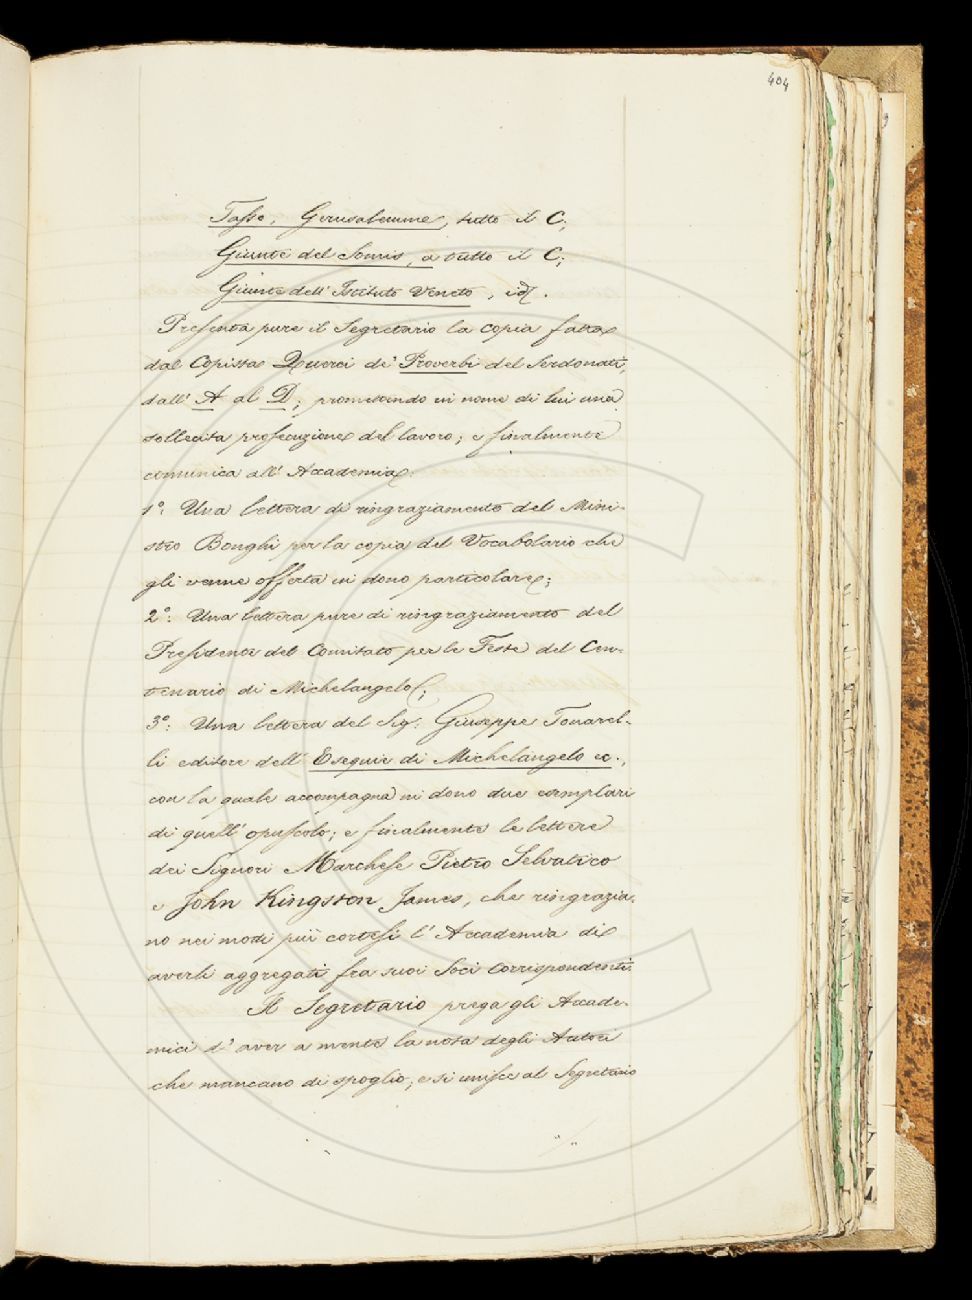 404
Tasso, Gerusalemme, tutto il C;
Giunte del Somis, a tutto il C;
Giunte dell'Istituto Veneto, id.
Presenta pure il Segretario la copia fatta
dal Copista Querci de' Proverbi del Serdonati,
dall' A al D; promettendo in nome di lui una
sollecita prosecuzione del lavoro; e finalmente
comunica all'Accademia:
1º: Una lettera di ringraziamento del Mini-
stro Bonghi per la copia del Vocabolario che
gli venne offerta in dono particolare;
2º: Una lettera pure di ringraziamento del
Presidente del Comitato per le Feste del Cen-
tenario di Michelangelo;
3º: Una lettera del Sig. Giuseppe Tonarel-
li editore dell'Esequie di Michelangelo ec.,
con la quale accompagna in dono due esemplari
di quell'opuscolo; e finalmente le lettere
dei Signori Marchese Pietro Selvatico
e John Kingston James, che ringrazia-
no nei modi più cortesi l'Accademia di
averli aggregati fra suoi Soci Corrispondenti.
Il Segretario prega gli Accade-
mici d'aver a mente la nota degli Autori
che mancano di spoglio; e si unisce al Segretario
"/..